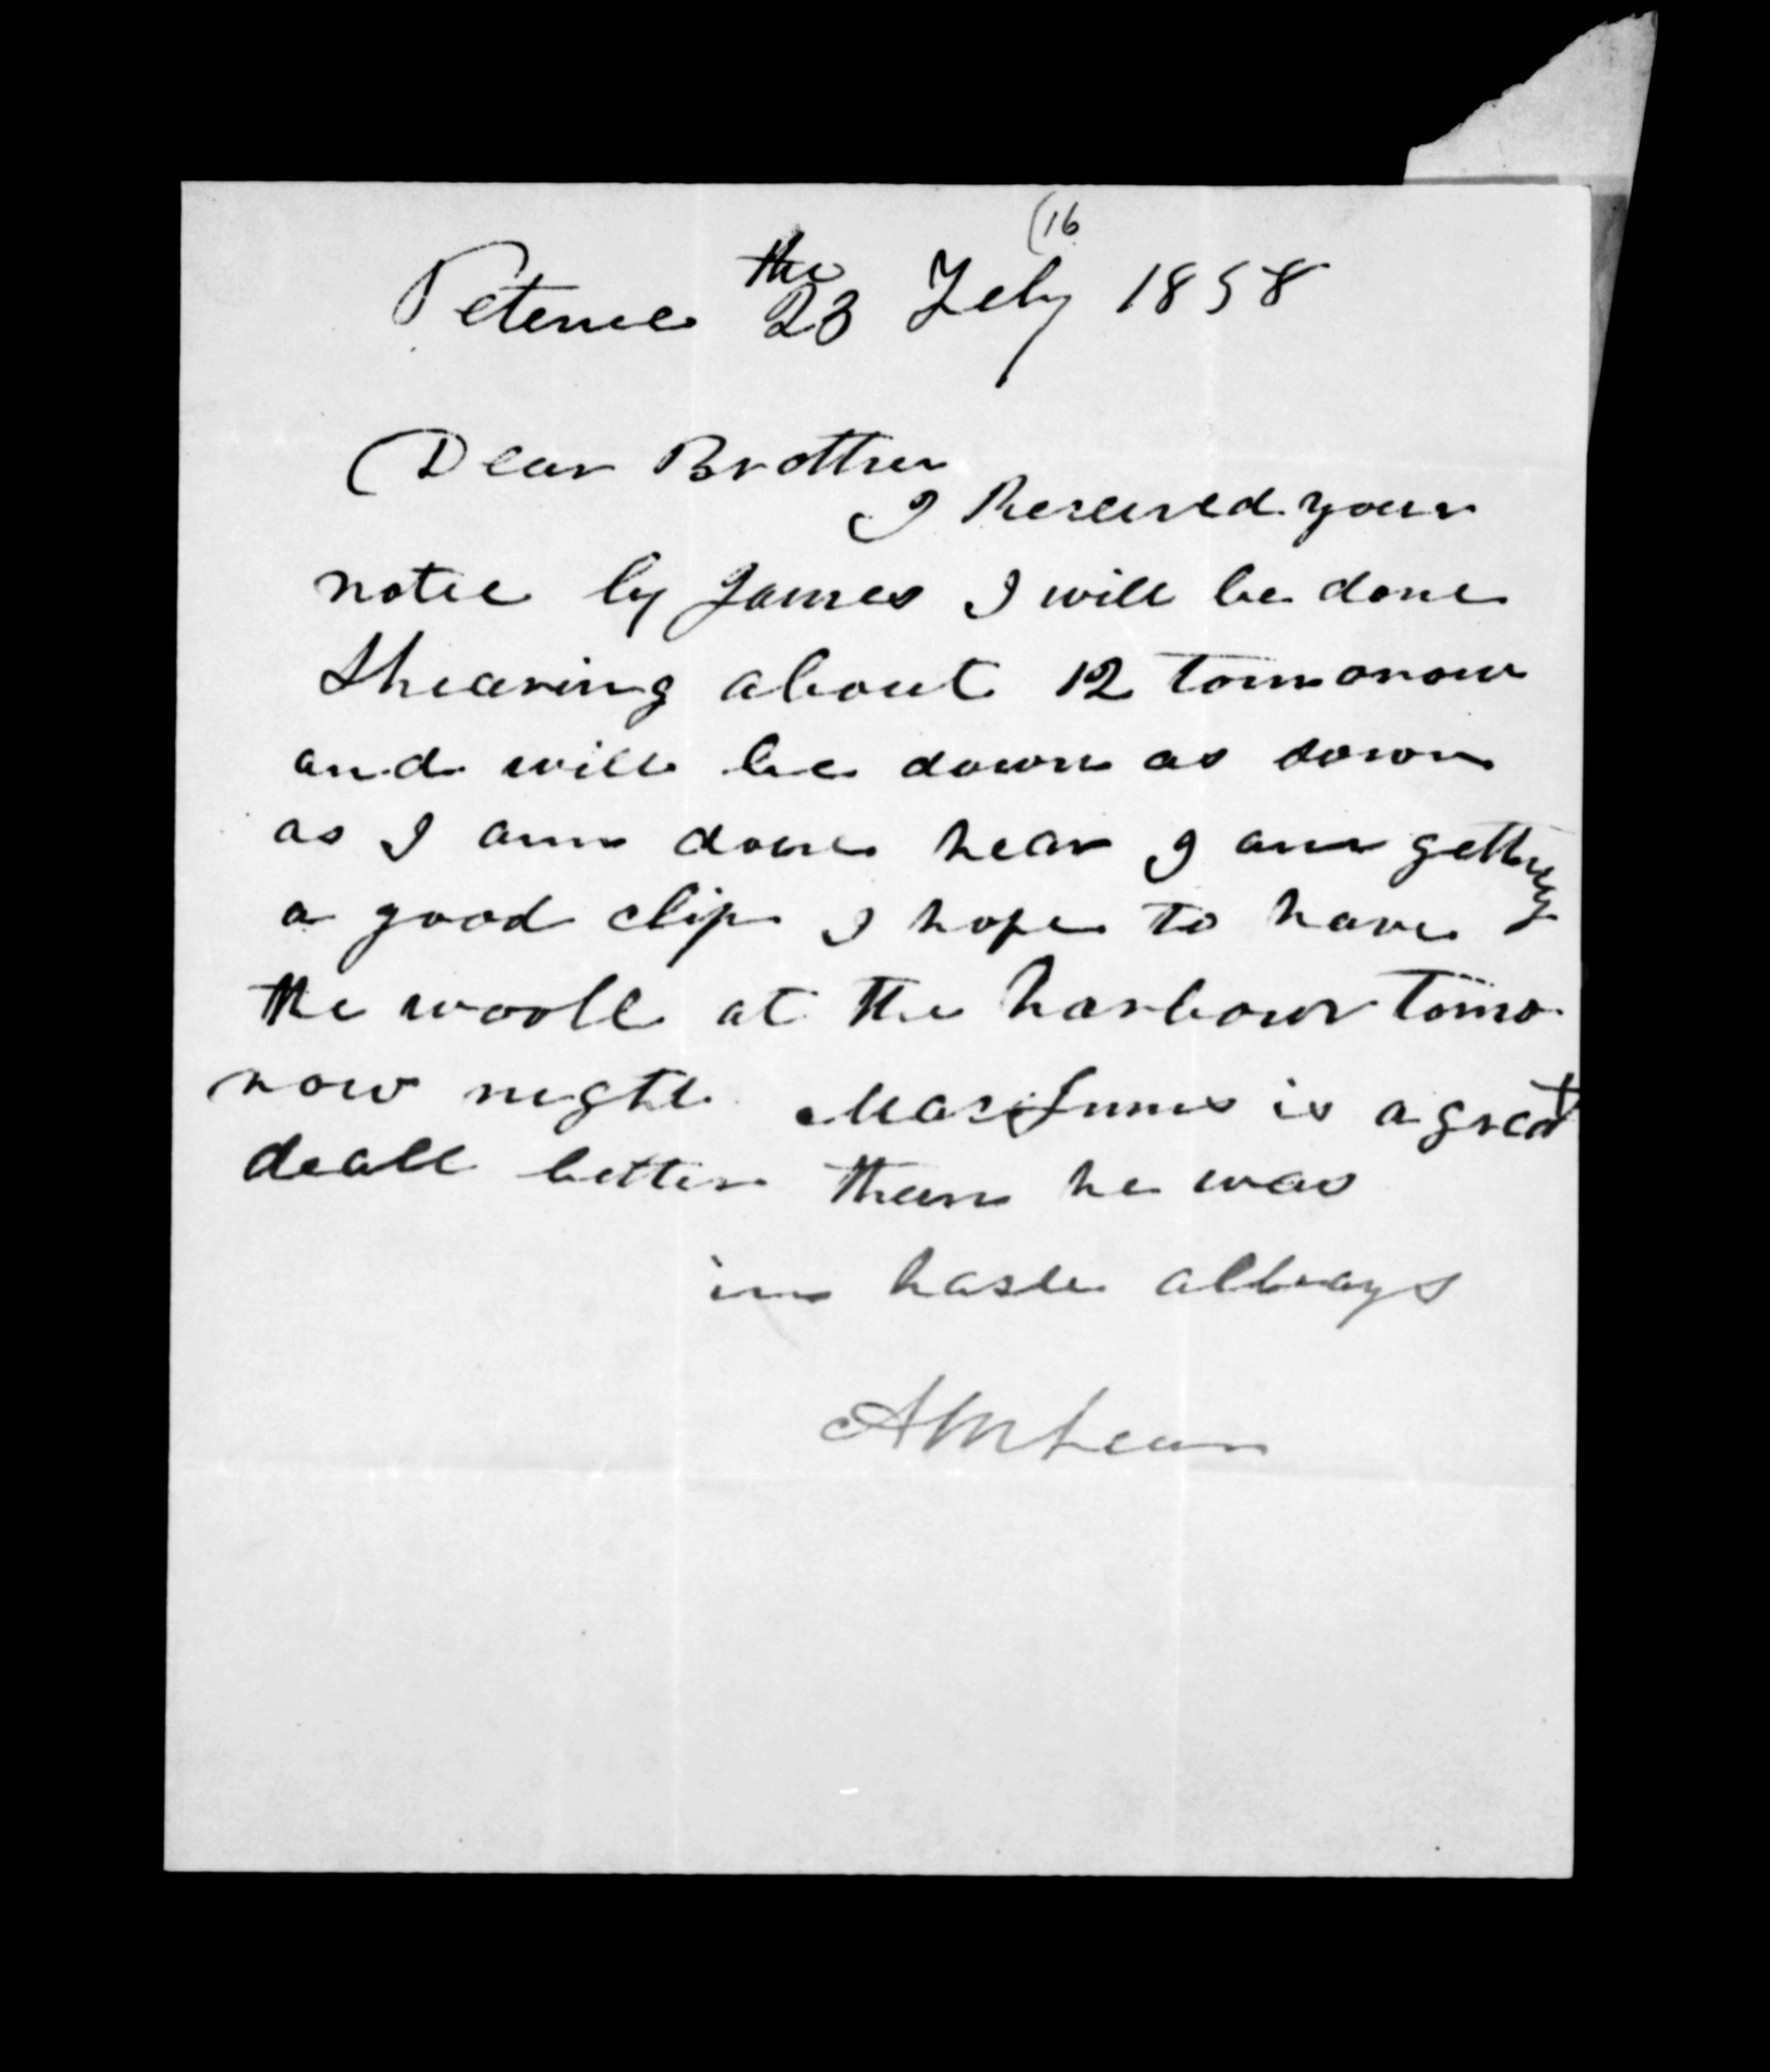 (16
Petenue the 23 Feby 1858
Dear Brother
I Reseived your
notee by James I will be done
Shearing about 12 tommorow
and will be down as soown
as I am done hear I am getting
a good clip I hope to have
the wooll at the harbour tomo
row night is a great
deall better then he was
in haste allways
A McLean